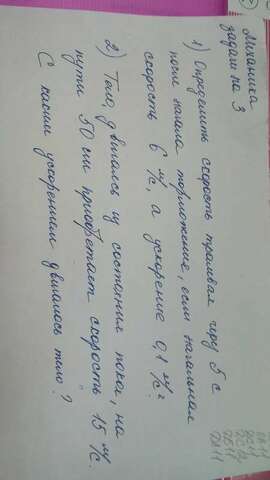 Механика
задачи на 3
1) Определить скорость трамвая через 5 с
после начала торможения, если начальная
скорость 6 м/с, а ускорение 0,1 м/с²
2) Тело двигалось из состояния покоя, на
пути 50 см приобретает скорость 15 м/с.
С каким ускорением двигалось тело?